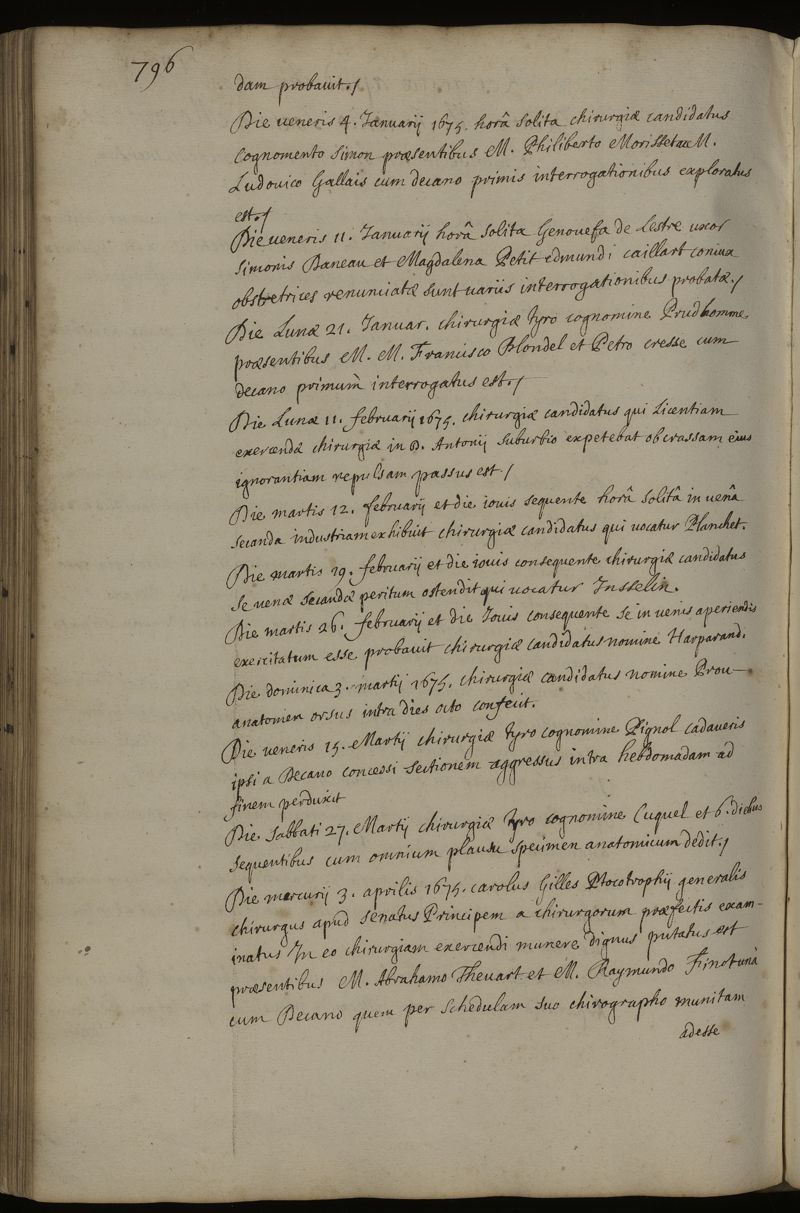 796
dam probauit./
Die ueneris 4. Januarij 1675. horâ solita chirurgiæ candidatus
cognomento Simon præsentibus M. Philiberto Morisset ac M.
Ludouico Gallais cum decano primis interrogationibus exploratus
est./
Die ueneris 11. Januarij horâ solita Genouefa de Lestre uxor
Simonis Baneau et Magdalena Petit edmundi caillart coniux
obstetrices renunciatæ sunt uariis interrogationibus probatæ./
Die Lunæ 21. Januar. chirurgiæ tyro cognomine Prudhomme,
præsentibus M. M. Francisco Blondel et Petro cresse cum
decano primum interrogatus est./
Die Lunæ 11. februarij 1675. chirurgiæ candidatus qui Licentiam
exercendæ chirurgiæ in D. Antonij suburbio expetebat ob crassam eius
ignorantiam repulsam passus est./
Die martis 12. februarij et die iouis sequente horâ solitâ in uenâ
secanda industriam exhibuit chirurgiæ candidatus qui uocatur Planchet.
Die martis 19. februarij et die iouis consequente chirurgiæ candidatus
se uenæ secandæ peritum ostendit qui uocatur Insselin.
Die martis 26. februarij et die Jouis consequente se in uenis aperiendis
exercitatum esse probauit chirurgiæ candidatus nomine Harparand.
Die dominica 3. martij 1675. chirurgiæ candidatus nomine Prou
anatomen orsus intra dies octo confecit.
Die ueneris 15. Martij chirurgiæ tyro cognomine Pignol cadaueris
ipsi a Decano concessi sectionem aggressus intra hebdomadam ad
finem perduxit
Die Sabbati 27. Martij chirurgiæ tyro cognomine Cuquel et 6. diebus
sequentibus cum omnium plausu specimen anatomicum dedit./
Die mercurij 3. aprilis 1675. carolus Gilles Ptocotrophij generalis
chirurgus apud senatus Principem a chirurgorum præfectis exam-
inatus In eo chirurgiam exercendi munere dignus putatus est
præsentibus M. Abrahamo Theuart et M. Raymundo Finot unà
cum Decano quem per schedulam suo chirographo munitam
adesse